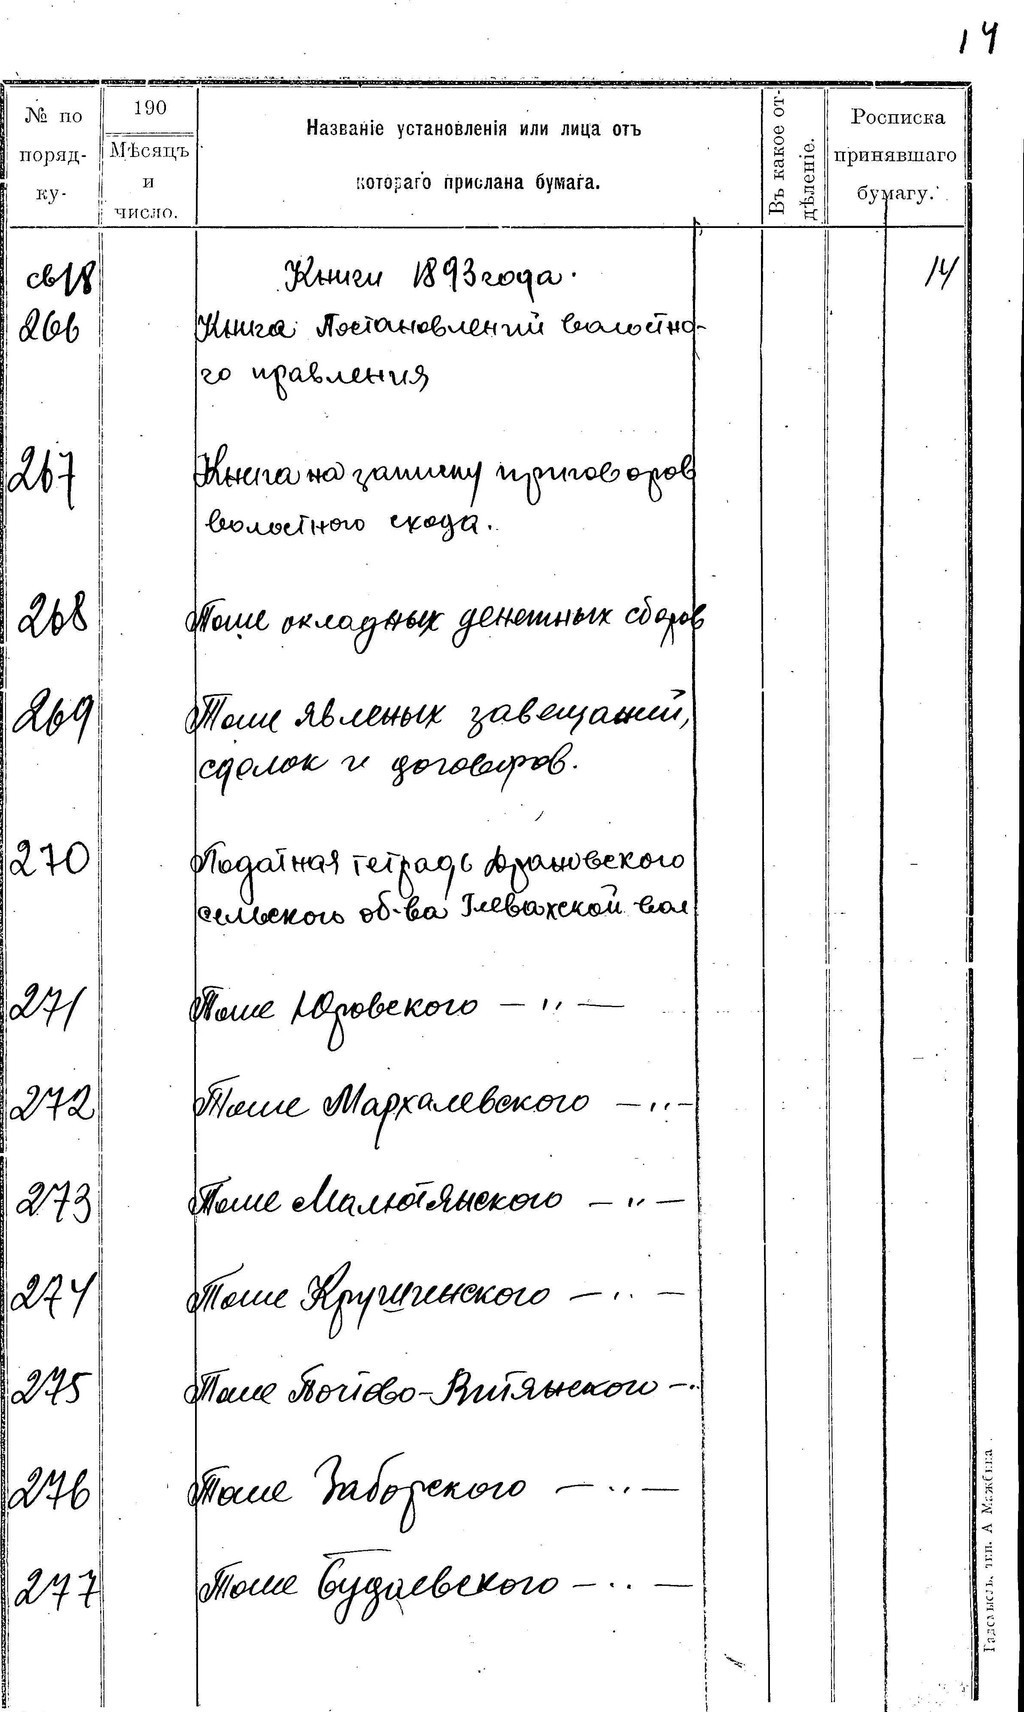 14
№ по поряд-ку-
190
Мѣсяцъ и число.
Названіе установленія или лица отъ
котораго прислана бумага.
Въ какое от-дѣленіе.
Росписка принявшаго бумагу.
св 18 Книги 1893 года. 14
266 Книга Постановлений волостно-
го правления
267 Книга на записку приговоров
волостного схода.
268 Тоже окладных денежных сборов
269 Тоже явленых завещаний,
сделок и договоров.
270 Податная тетрадь
сельского об-ва Глевахской вол
271 Тоже Юровского — " —
272 Тоже Мархалевского — " —
273 Тоже Малютянского — " —
274 Тоже Крушинского — " —
275 Тоже Почтово-Витянского — "
276 Тоже Заборского — " —
277 Тоже Будаевского — " —
тип. А